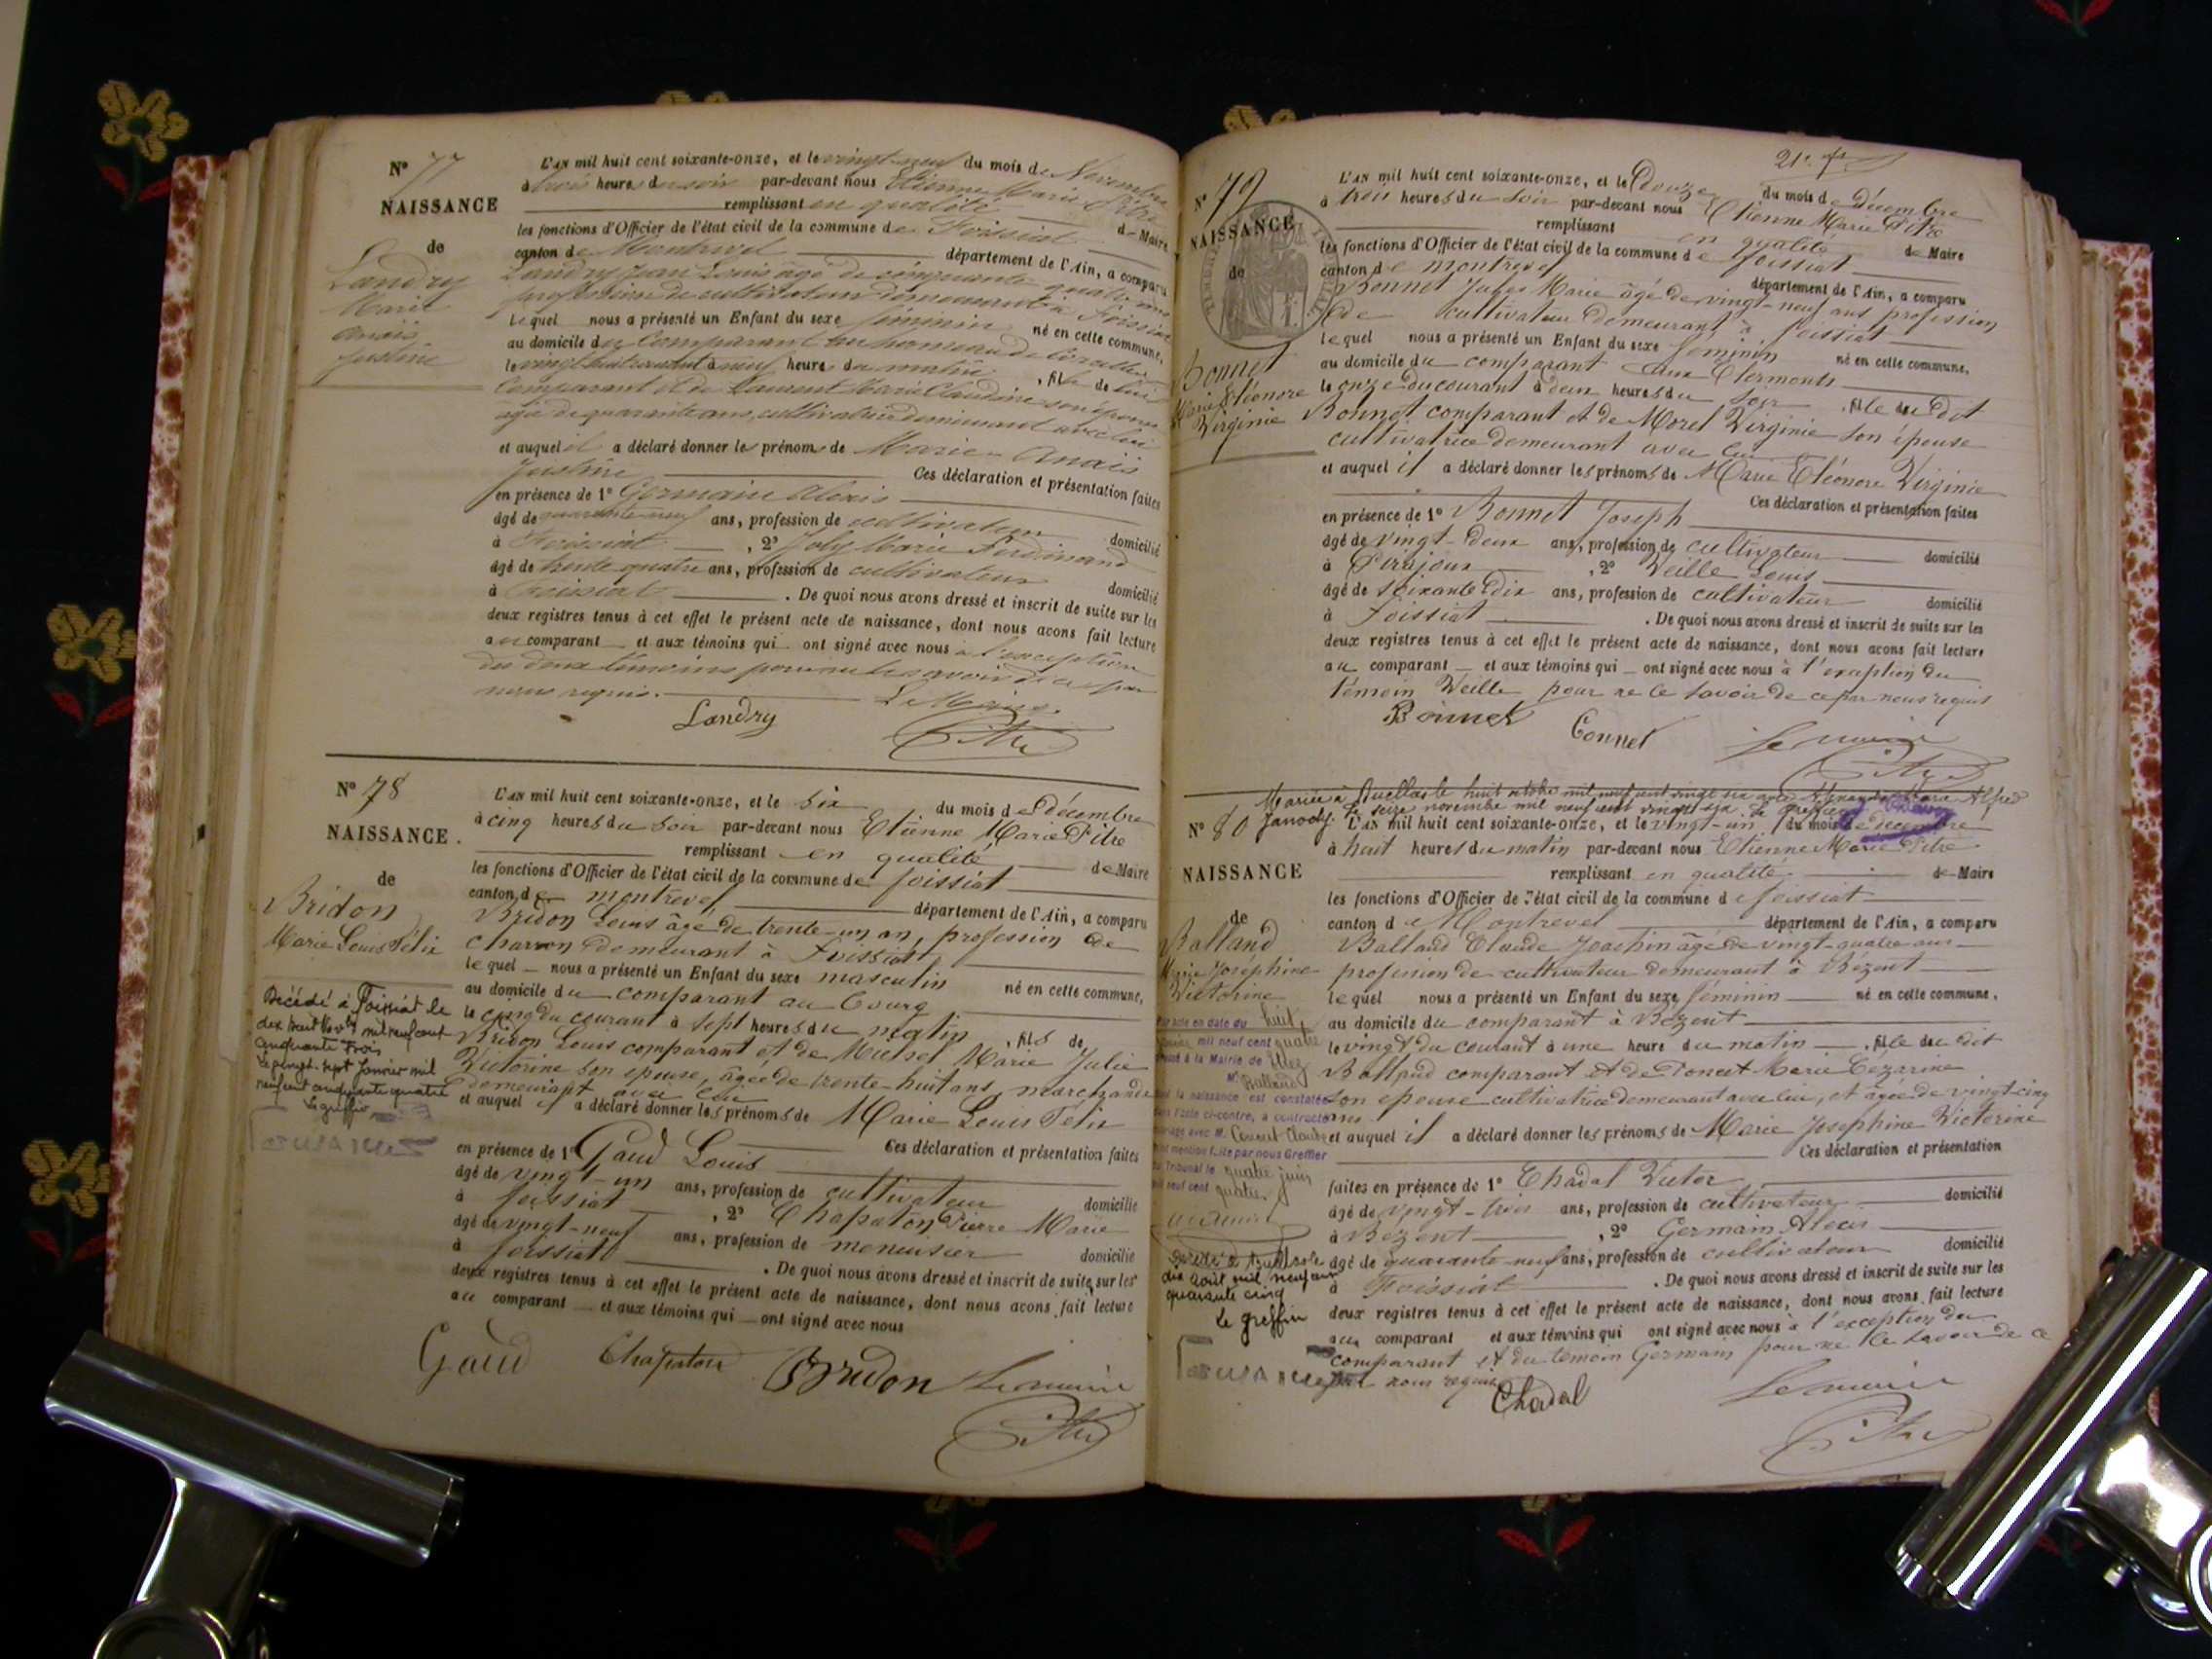 N° 77
NAISSANCE
de
Landry
Marie
Anaïs
Justine
L'AN mil huit cent soixante-onze, et le vingt-neuf du mois de Novembre
à trois heures du soir par-devant nous Etienne Marie Pitre
remplissant en qualité de Maire
les fonctions d'Officier de l'état civil de la commune de Foissiat
canton de Montrevel département de l'Ain, a comparu
Landry Jean Louis âgé de cinquante-quatre ans
profession de cultivateur demeurant à Foissiat
lequel nous a présenté un Enfant du sexe féminin né en cette commune,
au domicile du comparant au hameau de
le vingt huit courant à neuf heures du matin, fille de lui
comparant et de Laurent Marie Claudine son épouse
âgée de quarante ans, cultivatrice demeurant avec lui
et auquel il a déclaré donner les prénoms de Marie Anaïs
Justine Ces déclaration et présentation faites
en présence de 1° Germain Alexis
âgé de quarante-neuf ans, profession de cultivateur domicilié
à Foissiat, 2° Joly Marie Ferdinand
âgé de trente quatre ans, profession de cultivateur domicilié
à Foissiat. De quoi nous avons dressé et inscrit de suite sur les
deux registres tenus à cet effet le présent acte de naissance, dont nous avons fait lecture
au comparant et aux témoins qui ont signé avec nous à l'exception
des deux témoins pour ne le savoir de ce par
nous requis. Le Maire.
Landry Pitre
N° 78
NAISSANCE.
de
Bridon
Marie Louis Félix
Décédé à Foissiat le
dix huit mil neuf cent
cinquante trois
Le vingt-sept Janvier mil
neuf cent cinquante quatre
Le greffier
L'AN mil huit cent soixante-onze, et le six du mois de décembre
à cinq heures du soir par-devant nous Etienne Marie Pitre
remplissant en qualité de Maire
les fonctions d'Officier de l'état civil de la commune de foissiat
canton de montrevel département de l'Ain, a comparu
Bridon Louis âgé de trente-un an, profession de
charron demeurant à Foissiat
lequel nous a présenté un Enfant du sexe masculin né en cette commune,
au domicile du comparant au bourg
le cinq du courant à sept heures du matin, fils de
Bridon Louis comparant et de Marie Julie
Victorine son épouse, âgée de trente-huit ans, marchande
demeurant avec lui
et auquel il a déclaré donner les prénoms de Marie Louis Félix
Ces déclaration et présentation faites
en présence de 1° Gaud Louis
âgé de vingt-un ans, profession de cultivateur domicilié
à foissiat, 2° Chapaton Pierre Marie
âgé de vingt-neuf ans, profession de menuisier domicilié
à foissiat. De quoi nous avons dressé et inscrit de suite sur les
deux registres tenus à cet effet le présent acte de naissance, dont nous avons fait lecture
au comparant et aux témoins qui ont signé avec nous
Gaud Chapaton Bridon Le maire
Pitre
21e
N° 79
NAISSANCE
de
Bonnet
Marie Eléonore
Virginie
L'AN mil huit cent soixante-onze, et le douze du mois de décembre
à trois heures du soir par-devant nous Etienne Marie Pitre
remplissant en qualité de Maire
les fonctions d'Officier de l'état civil de la commune de foissiat
canton de montrevel département de l'Ain, a comparu
Bonnet Jules Marie âgé de vingt-neuf ans profession
de cultivateur demeurant à foissiat
lequel nous a présenté un Enfant du sexe féminin né en cette commune,
au domicile du comparant aux Clermonts
le onze du courant à deux heures du soir, fille du dit
Bonnet comparant et de Morel Virginie son épouse
cultivatrice demeurant avec lui
et auquel il a déclaré donner les prénoms de Marie Eléonore Virginie
Ces déclaration et présentation faites
en présence de 1° Bonnet Joseph
âgé de vingt-deux ans, profession de cultivateur domicilié
à Pirajoux, 2° Veille Louis
âgé de soixante dix ans, profession de cultivateur domicilié
à Foissiat. De quoi nous avons dressé et inscrit de suite sur les
deux registres tenus à cet effet le présent acte de naissance, dont nous avons fait lecture
au comparant et aux témoins qui ont signé avec nous à l'exception du
témoin Veille pour ne le savoir de ce par nous requis
Bonnet Bonnet Le maire
Pitre
Mariée à le huit octobre mil neuf cent vingt six avec Alexandre Marie Alfred
Janody. Le seize novembre mil neuf cent vingt six. Le greffier
N° 80
NAISSANCE
de
Balland
Marie Joséphine
Victorine
acte en date du huit
mil neuf cent quatre
à la Mairie de
Balland
la naissance est constatée
dans l'acte ci-contre, a contracté
mariage avec M. Claude
mention faite par nous Greffier
du Tribunal le quatre juin
mil neuf cent quatre
Décédée à le
dix août mil neuf cent
quarante cinq
Le greffier
L'AN mil huit cent soixante-onze, et le vingt-un du mois de décembre
à huit heures du matin par-devant nous Etienne Marie Pitre
remplissant en qualité de Maire
les fonctions d'Officier de l'état civil de la commune de foissiat
canton de Montrevel département de l'Ain, a comparu
Balland Claude Joachin âgé de vingt-quatre ans
profession de cultivateur demeurant à Bézent
lequel nous a présenté un Enfant du sexe féminin né en cette commune,
au domicile du comparant à Bézent
le vingt du courant à une heure du matin, fille du dit
Balland comparant et de Poncet Marie Cézarine
son épouse cultivatrice demeurant avec lui, et âgée de vingt-cinq
ans
et auquel il a déclaré donner les prénoms de Marie Joséphine Victorine
Ces déclaration et présentation
faites en présence de 1° Chadal Victor
âgé de vingt-trois ans, profession de cultivateur domicilié
à Bézent, 2° Germain Alexis
âgé de quarante-neuf ans, profession de cultivateur domicilié
à Foissiat. De quoi nous avons dressé et inscrit de suite sur les
deux registres tenus à cet effet le présent acte de naissance, dont nous avons fait lecture
au comparant et aux témoins qui ont signé avec nous à l'exception du
comparant et du témoin Germain pour ne le savoir de ce
par nous requis
Chadal Le maire
Pitre